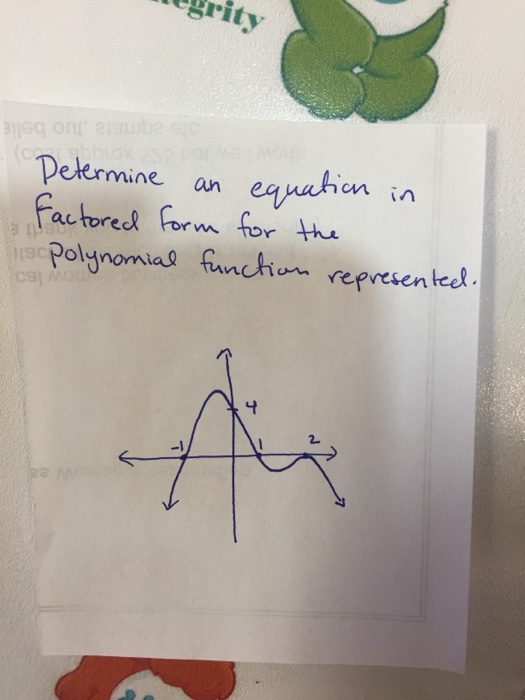 egrity
Determine an equation in
Factored Form for the
polynomial function represented.
4
-1
1
2